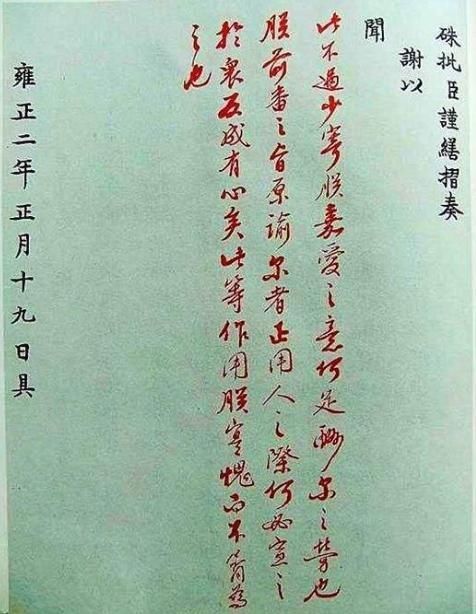 硃批臣謹繕摺奏
謝以
聞
此不過少寄朕嘉愛之意何足酬尔之勞也
朕前番之旨原諭尔者正用人之際何必宣之
扵衆反成有心矣此等作用朕寔愧而不屑為
之也
雍正二年正月十九日具